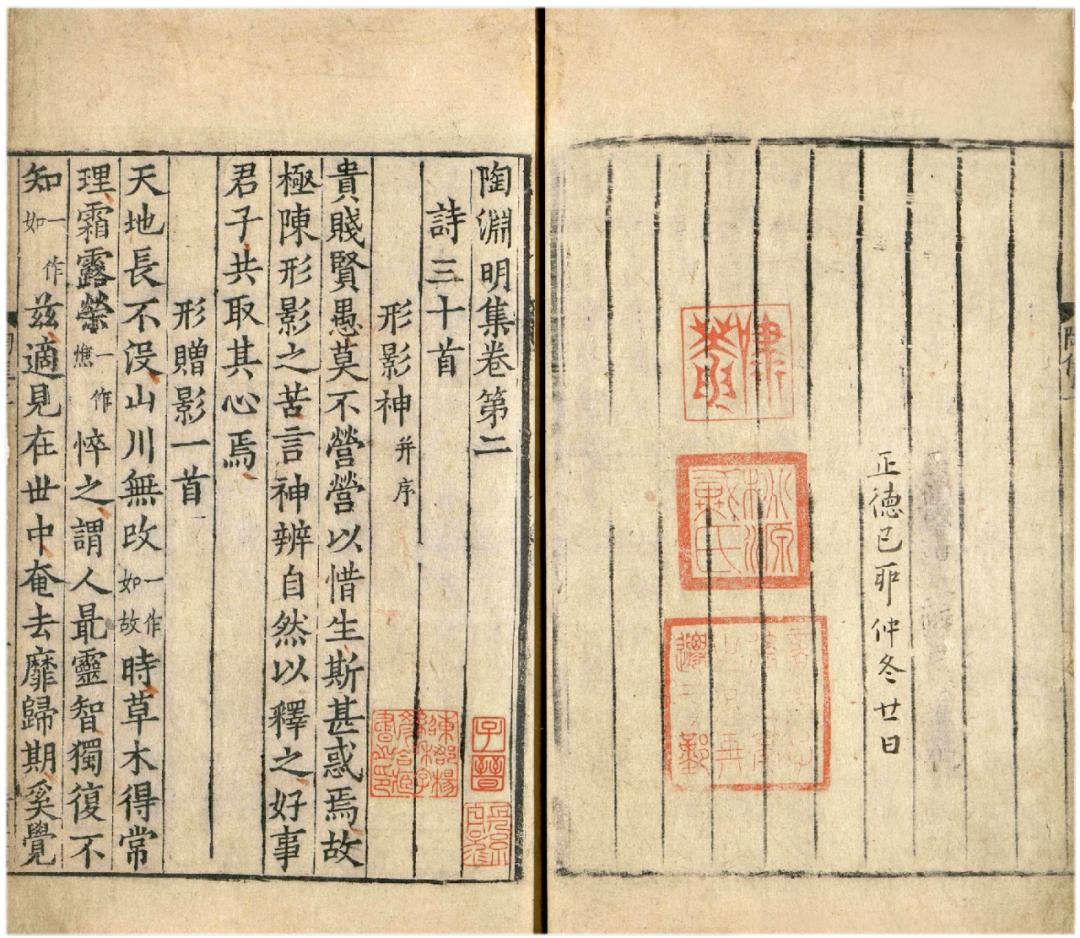 正德己卯仲冬廿日
桃源戴氏
陶淵明集卷第二
詩三十首
形影神并序
貴賤賢愚莫不營營以惜生斯甚惑焉故
極陳形影之苦言神辨自然以釋之好事
君子共取其心焉
形贈影一首
天地長不没山川無改一作如故時草木得常
理霜露榮一作憔悴之謂人最靈智獨復不
知一作如兹適見在世中奄去靡歸期奚覺
子晉